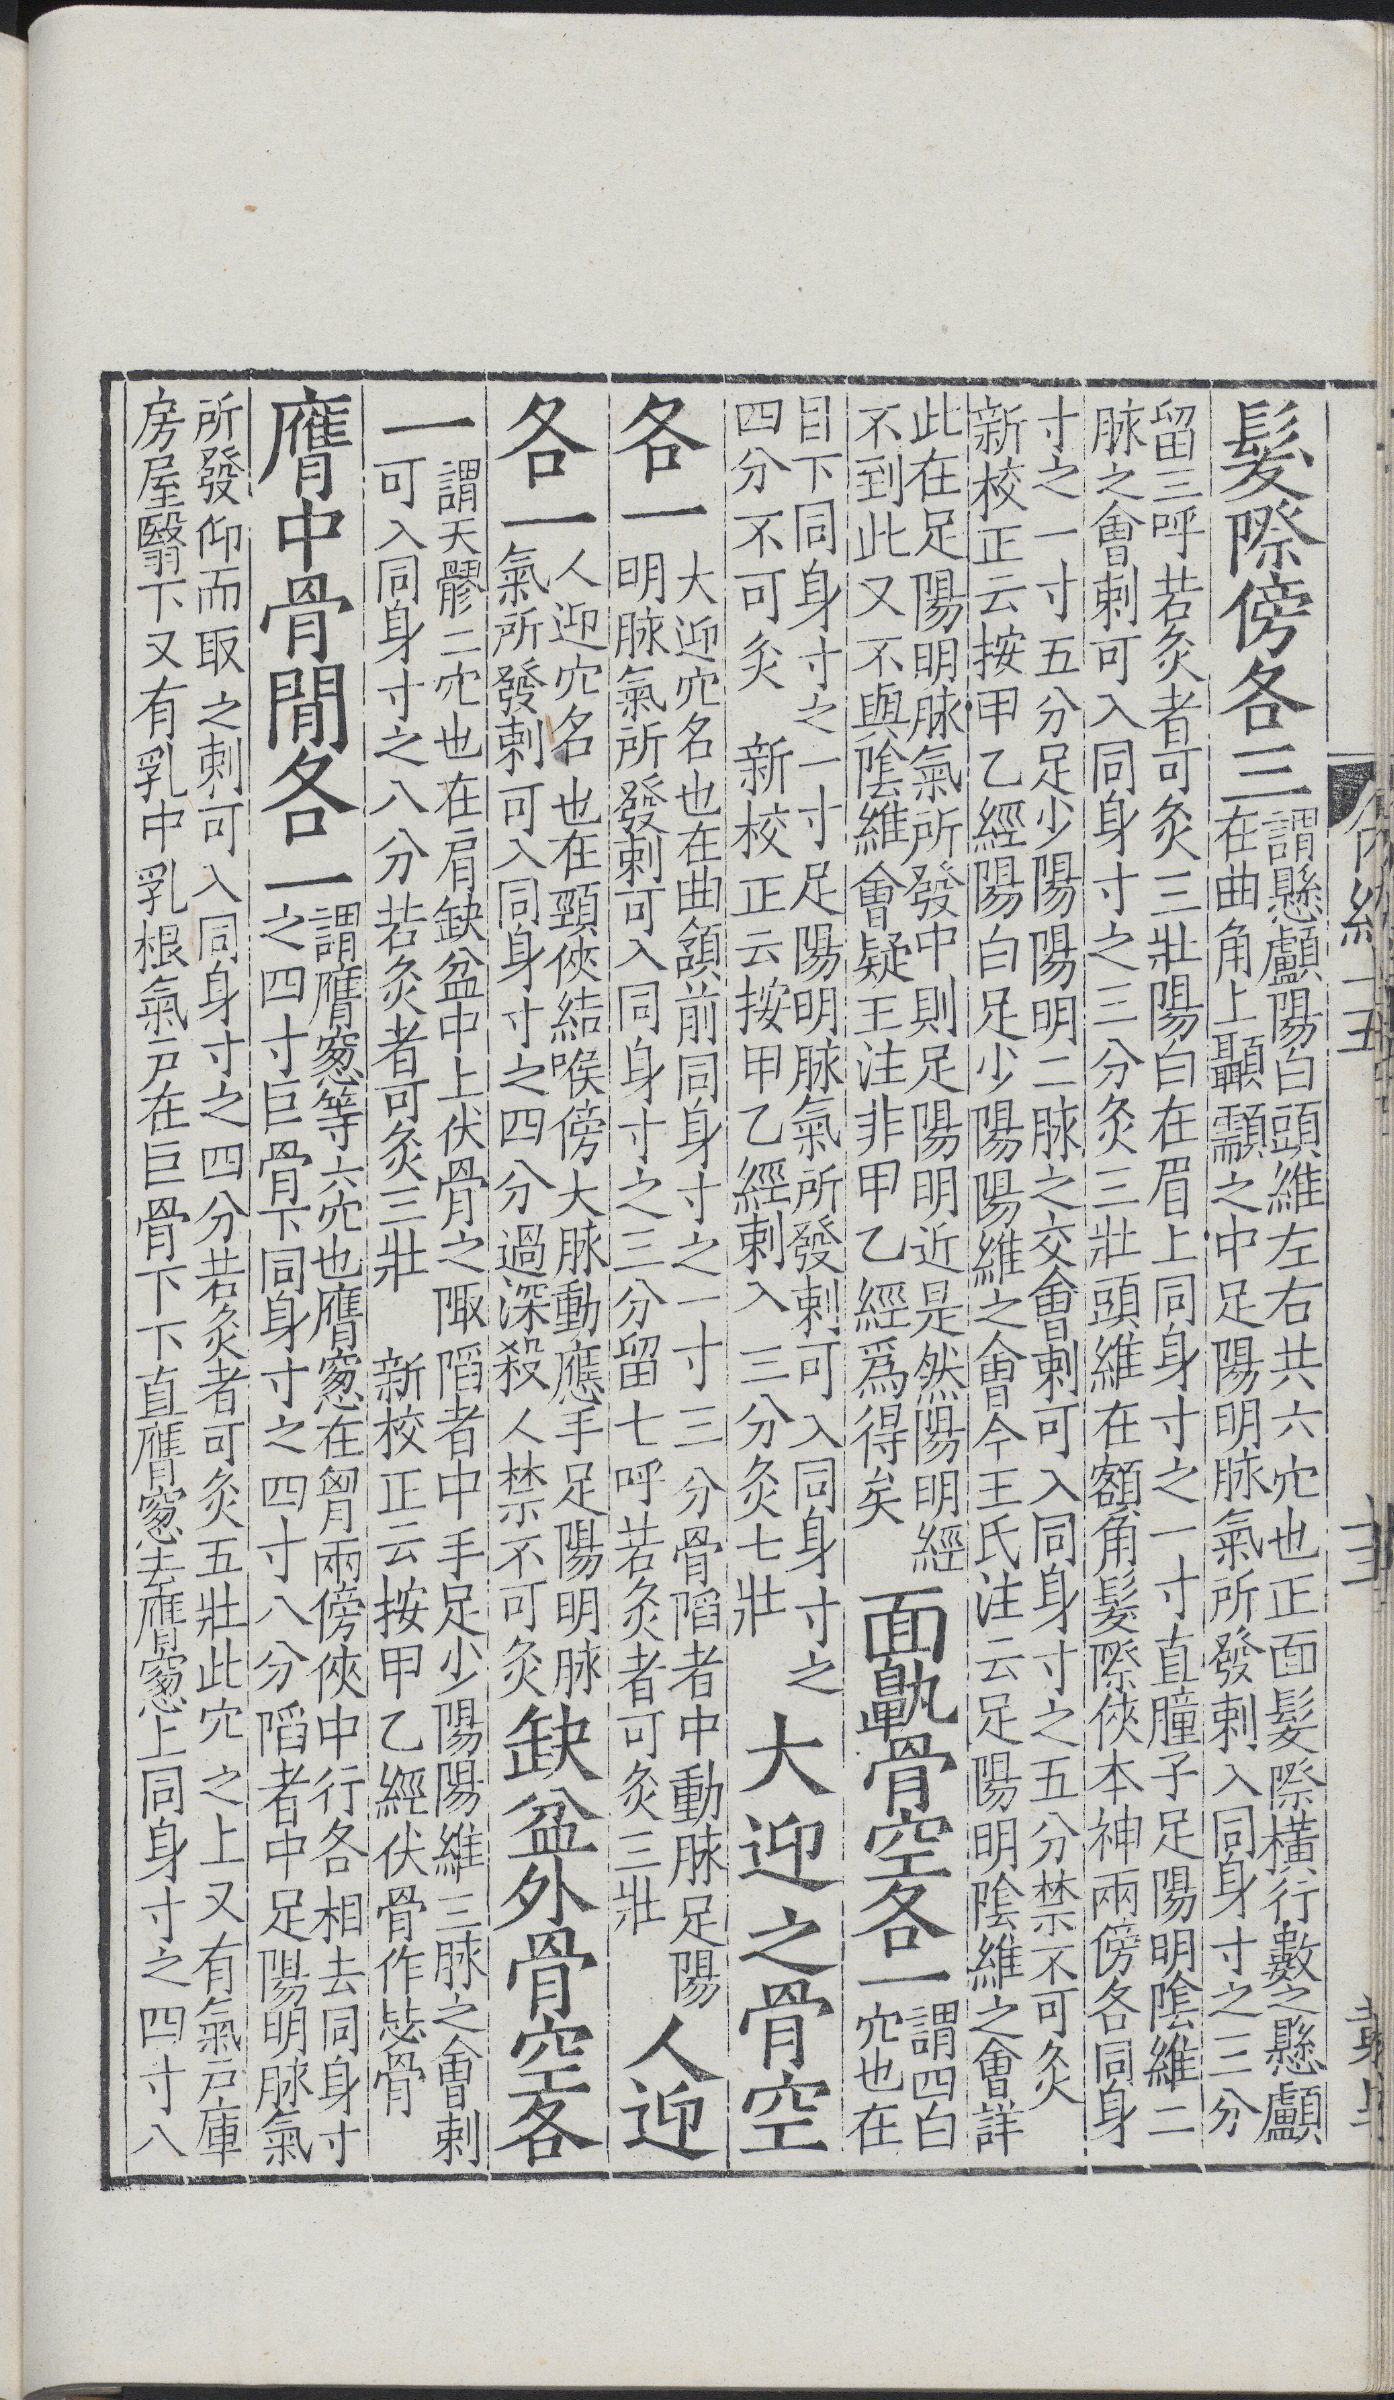 髮際傍各三謂懸顱陽白頭維左右共六穴也正面髮際橫行數之懸顱
在曲角上顳顬之中足陽明脉氣所發刺入同身寸之三分
留三呼若灸者可灸三壯陽白在眉上同身寸之一寸直瞳子足陽明陰維二
脉之會刺可入同身寸之三分灸三壯頭維在額角髮際俠本神兩傍各同身
寸之一寸五分足少陽陽明二脉之交會刺可入同身寸之五分禁不可灸
新校正云按甲乙經陽白足少陽陽維之會今王氏注云足陽明陰維之會詳
此在足陽明脉氣所發中則足陽明近是然陽明經
不到此又不與陰維會疑王注非甲乙經爲得矣
面鼽骨空各一謂四白
穴也在
目下同身寸之一寸足陽明脉氣所發刺可入同身寸之
四分不可灸 新校正云按甲乙經刺入三分灸七壯
大迎之骨空
各一大迎穴名也在曲頷前同身寸之一寸三分骨陷者中動脉足陽
明脉氣所發刺可入同身寸之三分留七呼若灸者可灸三壯
人迎
各一人迎穴名也在頸俠結喉傍大脉動應手足陽明脉
氣所發刺可入同身寸之四分過深殺人禁不可灸
缺盆外骨空各
一謂天髎二穴也在肩缺盆中上伏骨之陬陷者中手足少陽陽維三脉之會刺
可入同身寸之八分若灸者可灸三壯 新校正云按甲乙經伏骨作毖骨
膺中骨間各一謂膺窻等六穴也膺窻在胷兩傍俠中行各相去同身寸
之四寸巨骨下同身寸之四寸八分陷者中足陽明脉氣
所發仰而取之刺可入同身寸之四分若灸者可灸五壯此穴之上又有氣戶庫
房屋翳下又有乳中乳根氣戶在巨骨下下直膺窻去膺窻上同身寸之四寸八